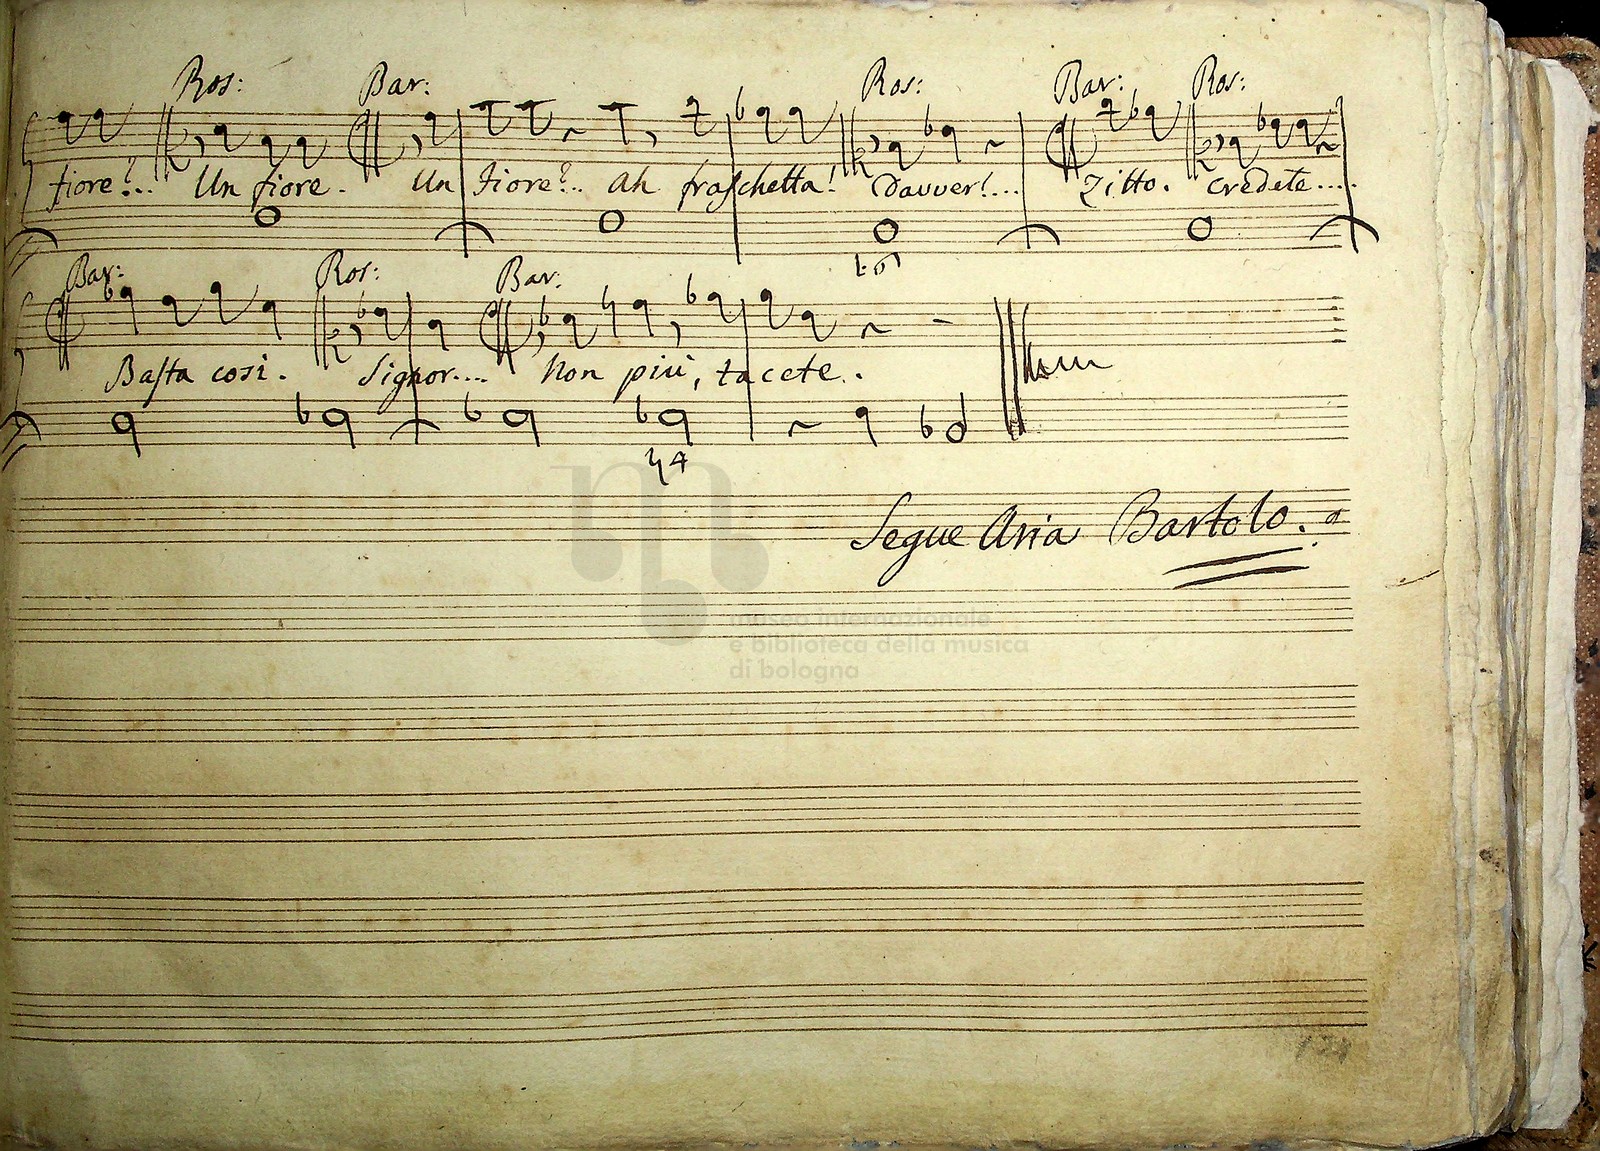 Ros: Bar: Ros: Bar: Ros:
fiore?... Un fiore. Un Fiore?.. Ah fraschetta! Davver!... Zitto. credete....
b6
Bar: Ros: Bar:
Basta così. Signor.... Non più, tacete..
♮4
Segue Aria Bartolo.
museo internazionale
e biblioteca della musica
di bologna